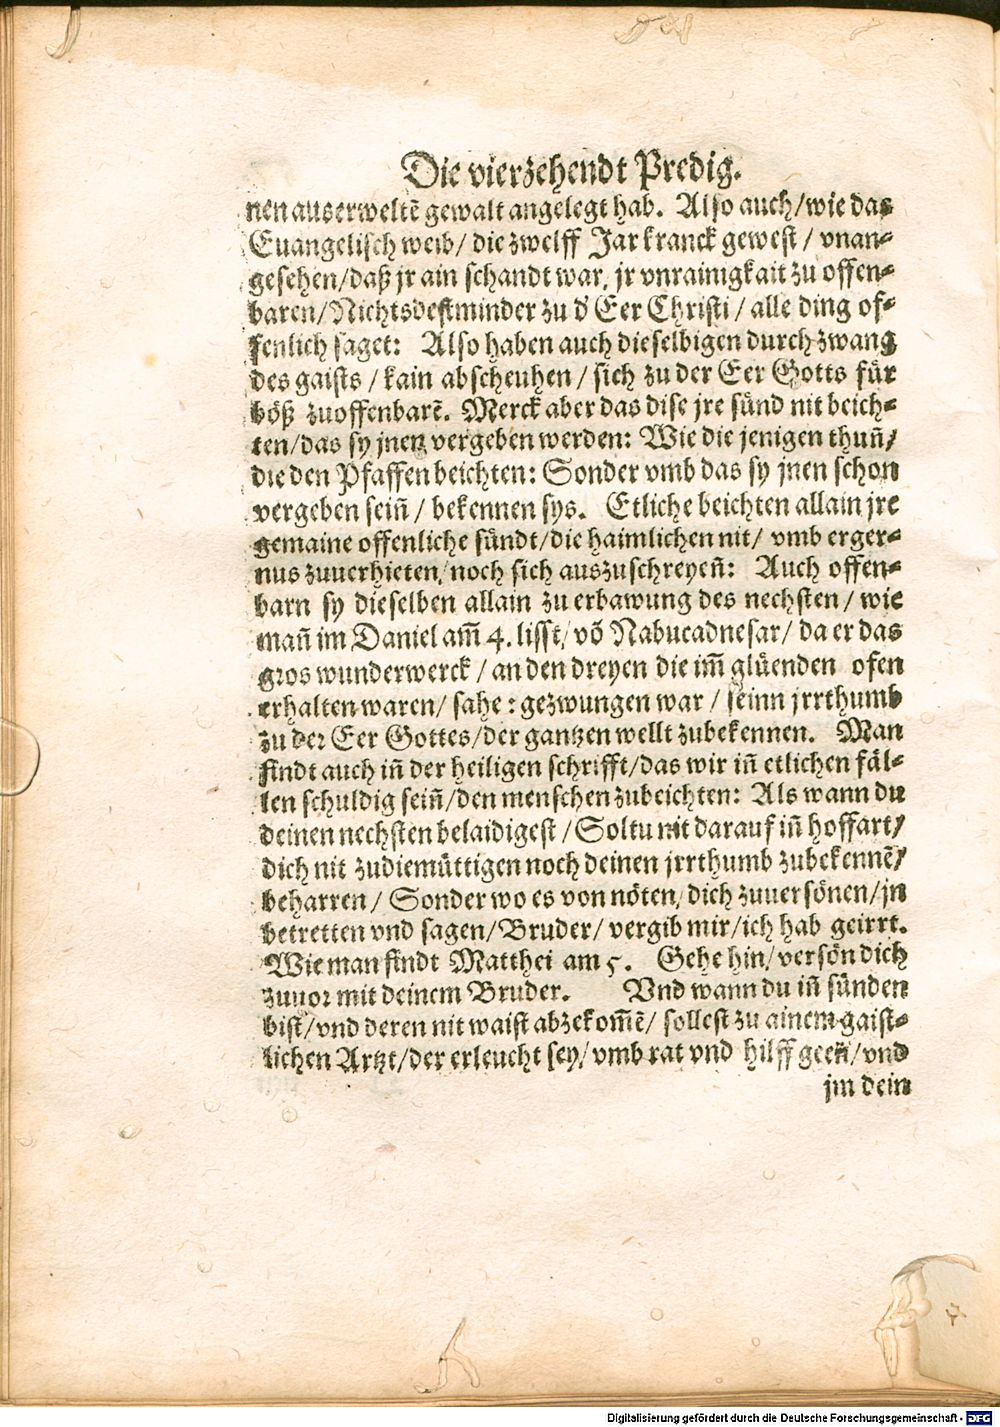 Die vierzehendt Predig.
nen auserweltē gewalt angelegt hab. Also auch/wie das
Euangelisch weib/ die zwelff Jar kranck gewest / vnan-
gesehen/daß jr ain schandt war, jr vnrainigkait zu offen-
baren/ Nichtsdestminder zu d' Eer Christi / alle ding of-
fenlich saget: Also haben auch dieselbigen durch zwang
des gaists / kain abscheuhen / sich zu der Eer Gotts für
böß zuoffenbarē. Merck aber das dise jre sünd nit beich-
ten/das sy jnen vergeben werden: Wie die jenigen thuñ/
die den Pfaffen beichten: Sonder vmb das sy jnen schon
vergeben seiñ / bekennen sys. Etliche beichten allain jre
gemaine offenliche sündt/die haimlichen nit/ vmb erger-
nus zuuerhieten/noch sich auszuschreyeñ: Auch offen-
barn sy dieselben allain zu erbawung des nechsten / wie
mañ im Daniel am̃ 4. lisst/ võ Nabucadnesar/ da er das
gros wunderwerck / an den dreyen die im̃ glüenden ofen
erhalten waren/ sahe : gezwungen war / seinn jrrthumb
zu der Eer Gottes/der gantzen wellt zubekennen. Man
findt auch iñ der heiligen schrifft/das wir iñ etlichen fäl-
len schuldig seiñ/den menschen zubeichten: Als wann du
deinen nechsten belaidigest / Soltu nit darauf iñ hoffart/
dich nit zudiemüttigen noch deinen jrrthumb zubekennē/
beharren / Sonder wo es von nöten/ dich zuuersönen/jn
betretten vnd sagen/Bruder/ vergib mir/ich hab geirrt.
Wie man findt Matthei am 5. Gehe hin/ versön dich
zuuor mit deinem Bruder. Vnd wann du iñ sünden
bist/vnd deren nit waist abzekom̃ē/ sollest zu ainem gaist-
lichen Artzt/der erleucht sey/vmb rat vnd hilff geeñ/vnd
jm dein
Digitalisierung gefördert durch die Deutsche Forschungsgemeinschaft - DFG